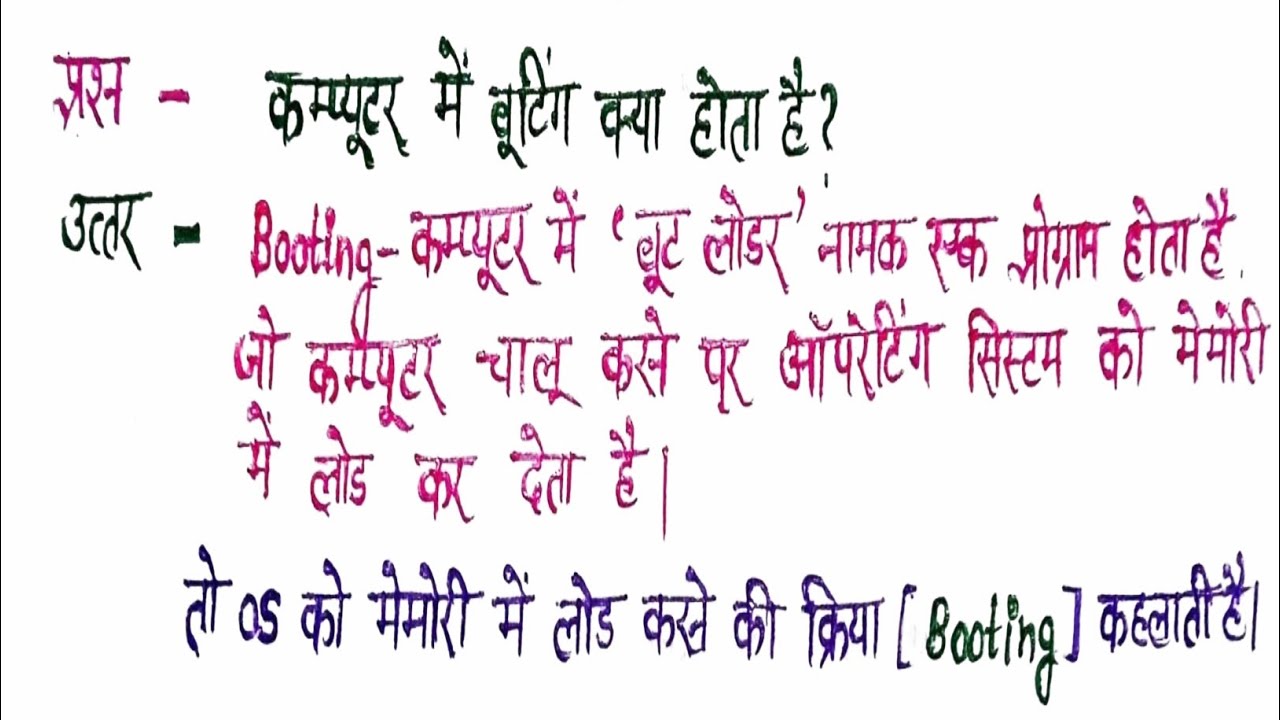 प्रश्न - कम्प्यूटर में बूटिंग क्या होता है?
उत्तर - Booting - कम्प्यूटर में ‘बूट लोडर’ नामक एक प्रोग्राम होता है
जो कम्प्यूटर चालू करने पर ऑपरेटिंग सिस्टम को मेमोरी
में लोड कर देता है।
तो OS को मेमोरी में लोड करने की क्रिया [Booting] कहलाती है।